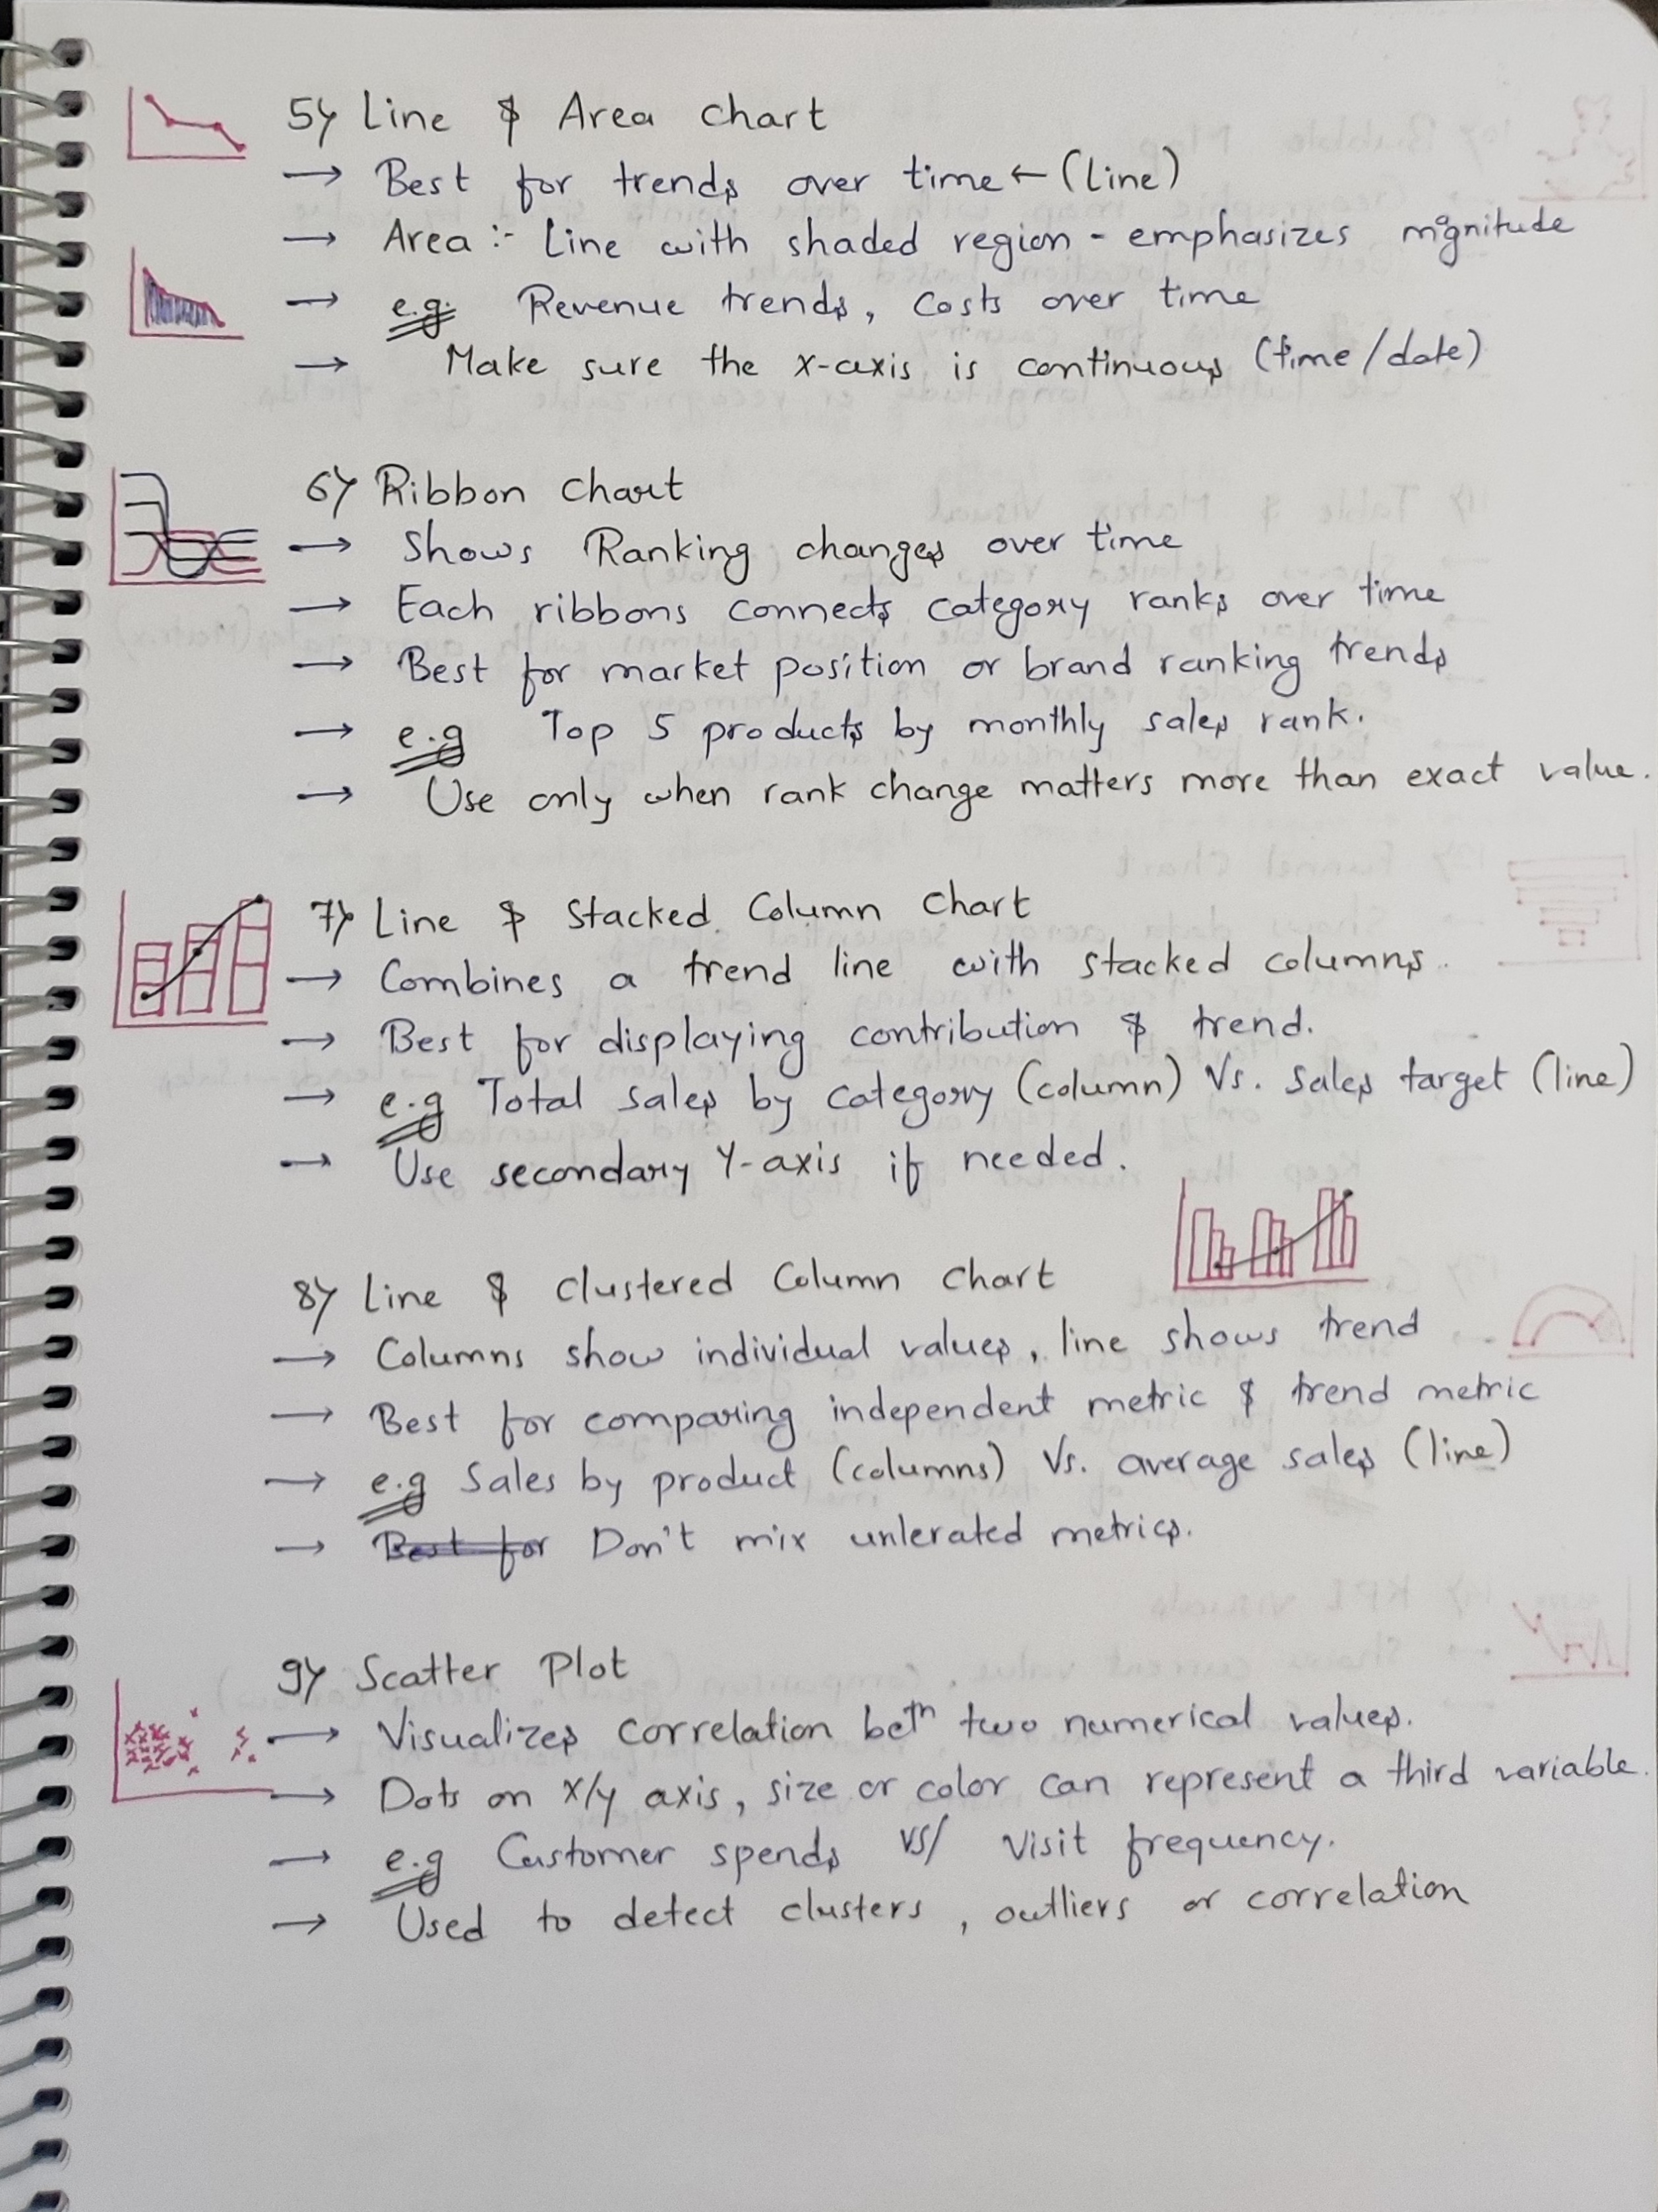 5) Line & Area Chart
→ Best for trends over time ← (line)
→ Area :- Line with shaded region - emphasizes magnitude
→ e.g. Revenue trends, costs over time
→ Make sure the x-axis is continuous (time/date)
6) Ribbon Chart
→ Shows Ranking changes over time
→ Each ribbons connects category ranks over time
→ Best for market position or brand ranking trends
→ e.g Top 5 products by monthly sales rank.
→ Use only when rank change matters more than exact value.
7) Line & Stacked Column Chart
→ Combines a trend line with stacked columns.
→ Best for displaying contribution & trend.
→ e.g Total sales by category (column) Vs. Sales target (line)
→ Use secondary Y-axis if needed.
8) Line & Clustered Column Chart
→ Columns show individual values, line shows trend
→ Best for comparing independent metric & trend metric
→ e.g Sales by product (columns) Vs. average sales (line)
→ Best for Don't mix unlerated metrics.
9) Scatter Plot
→ Visualizes correlation betⁿ two numerical values.
→ Dots on X/y axis, size or color can represent a third variable.
→ e.g Customer spends vs/ visit frequency.
→ Used to detect clusters, outliers or correlation